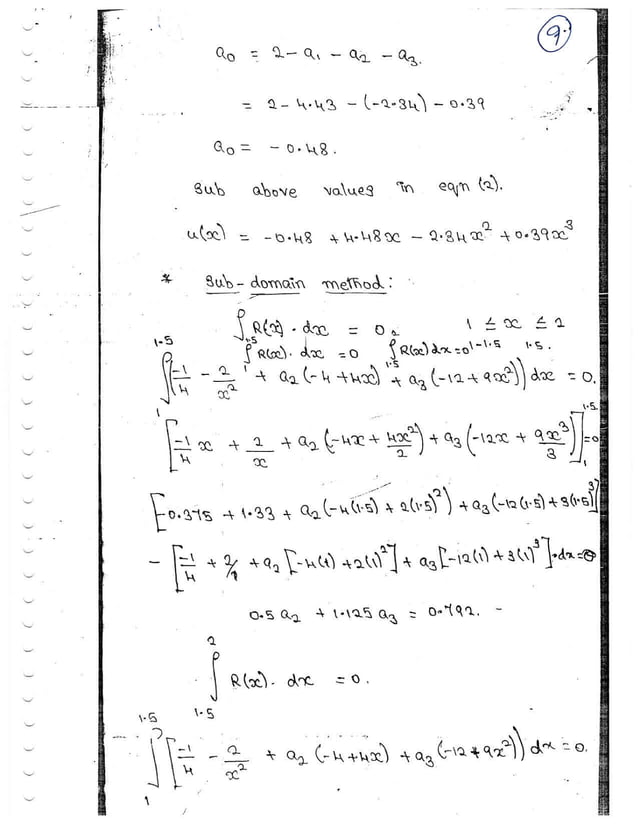 9.
a₀ = 2 - a₁ - a₂ - a₃.
= 2 - 4.43 - (-2.34) - 0.39
a₀ = -0.48.
Sub above values in eqn (2).
u(x) = -0.48 + 4.48x - 2.34x² + 0.39x³
* Sub-domain method:
∫ R(x) . dx = 0 1 ≤ x ≤ 2
∫₁^1.5 R(x). dx = 0 ∫_1.5 R(x) dx = 0 1-1.5 1.5.
∫₁^1.5 (-1/4 - 2/x² + a₂(-4+4x) + a₃(-12+9x²)) dx = 0.
[-1/4 x + 2/x + a₂(-4x + 4x²/2) + a₃(-12x + 9x³/3)]₁^1.5 = 0
[-0.375 + 1.33 + a₂(-4(1.5) + 2(1.5)²) + a₃(-12(1.5) + 3(1.5)³]
- [-1/4 + 2/1 + a₂[-4(1) + 2(1)²] + a₃[-12(1) + 3(1)³].dx = 0
0.5 a₂ + 1.125 a₃ = 0.792. -
∫_1.5^2 R(x). dx = 0.
∫₁^1.5 [-1/4 - 2/x² + a₂(-4+4x) + a₃(-12+9x²)) dx = 0.